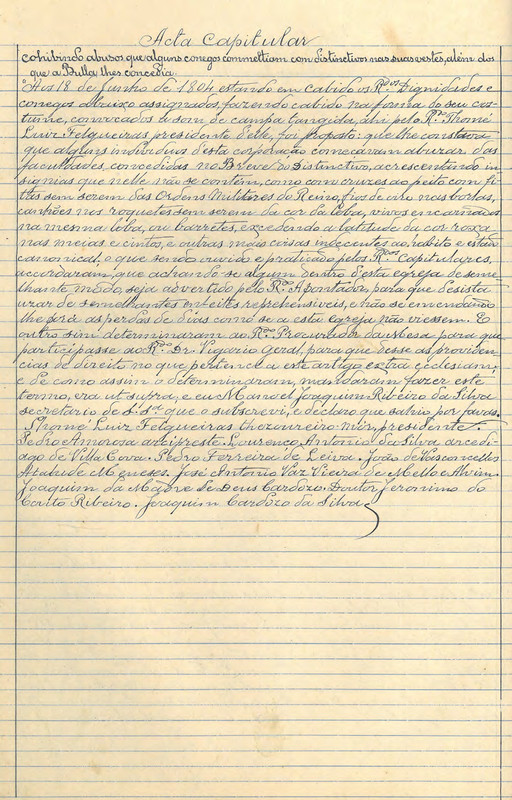 Acta Capitular
cohibindo abusos que alguns conegos commettiam com distinctivos nas suas vestes, além dos
que a Bulla lhes concedia.
"Aos 18 de Junho de 1804, estando em cabido os R.dos Dignidades e
conegos abaixo assignados, fazendo cabido na forma do seu cos-
tume, convocados a som de campa tangida, ahi pelo R.do Thomé
Luiz Felgueiras presidente d'elle, foi proposto: que lhe constava
que alguns individuos d'esta corporação começavam abuzar das
faculdades, concedidas no Breve do Distinctivo, acrescentando in-
signias que nelle não se contém, como com cruzes ao peito com fi-
tas sem serem das Ordens Militares do Reino, fios de ouro nas borlas,
canhões nos roquetes sem serem da cor da loba, vivos encarnados
na mesma loba, ou barretes, excedendo a latitude da cor roxa
nas meias e cintos, e outras mais coisas indecentes ao habito e estado
canonical, o que sendo ouvido e praticado pelos R.dos Capitulares,
accordaram, que achando-se algum dentro d'esta egreja de seme-
lhante modo, seja advertido pelo R.do Apontador, para que desista
uzar de semelhantes enfeites reprehensiveis, e não se emendando
lhe fará as perdas de dias como se a esta egreja não viessem. E
outro sim determinaram ao R.do Procurador da Mesa para que
participasse ao R.do Dr. Vigario Geral, para que desse as providen-
cias de direito no que pertence a este artigo extra eclesiam;
e de como assim o determinaram, mandaram fazer este
termo, era ut supra, e eu Manoel Joaquim Ribeiro da Silva
secretario de S. S.as que o subscrevi, e declaro que sahio por favas.
Thomé Luiz Felgueiras thezoureiro mór, presidente.
Pedro Amorosa arcipreste. Lourenço Antonio da Silva arcedi-
ago de Villa Cova. Pedro Ferreira de Leiva. João de Vasconcellos
Ataide de Meneses. José Antonio Vaz Vieira de Mello e Alvim.
Joaquim da Madre de Deus Cardozo. Doutor Jeronimo do
Couto Ribeiro. Joaquim Cardozo da Silva